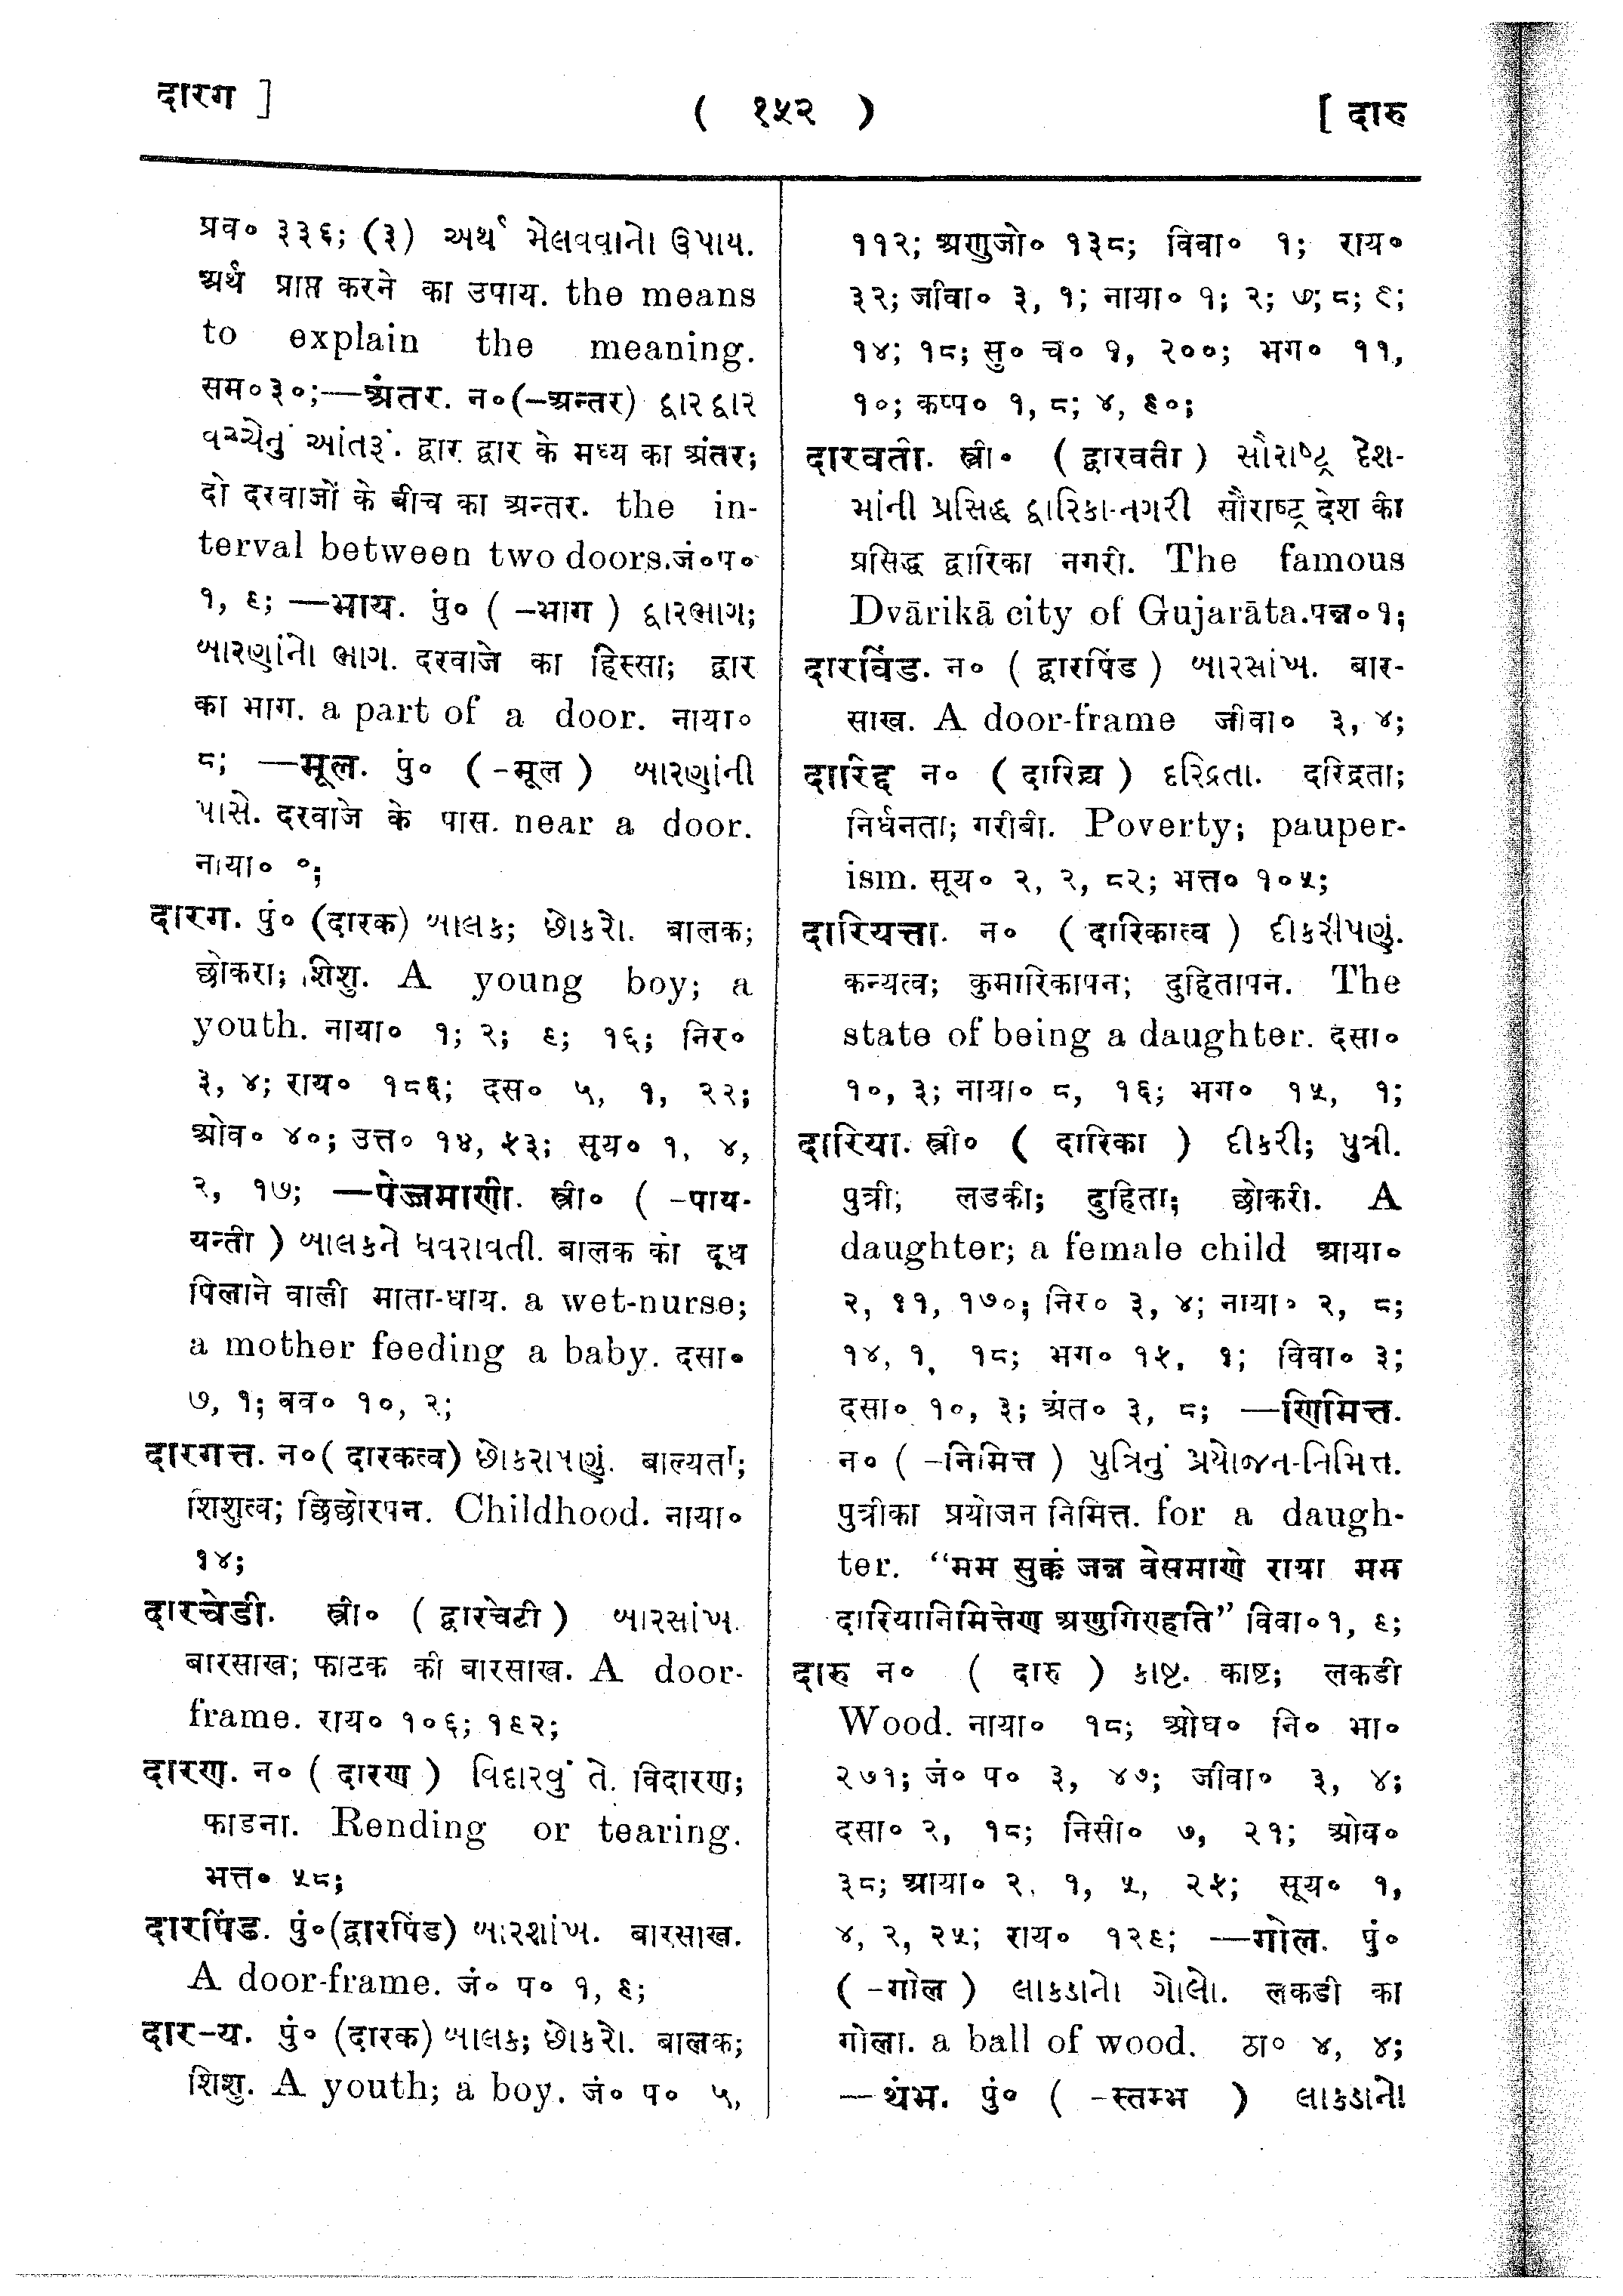 दारग ]
( १५२ )
[ दारु
प्रव० ३३६; (३) અર્થ મેલવવાનો ઉપાય.
अर्थ प्राप्त करने का उपाय. the means
to explain the meaning.
सम०३०;—अंतर. न०(-अन्तर) દ્વારદ્વાર
વચ્ચેનું આંતરૂં. द्वार द्वार के मध्य का अंतर;
दो दरवाजों के बीच का अन्तर. the in-
terval between two doors.जं०प०
१, ६; —भाय. पुं० ( -भाग ) દ્વારભાગ;
બારણાંનો ભાગ. दरवाजे का हिस्सा; द्वार
का भाग. a part of a door. नाया०
८; —मूल. पुं० ( -मूल ) બારણાંની
પાસે. दरवाजे के पास. near a door.
नाया०
दारग. पुं० (दारक) બાલક; છોકરો. बालक;
छोकरा; शिशु. A young boy; a
youth. नाया० १; २; ६; १६; निर०
३, ४; राय० १८६; दस० ५, १, २२;
ओव० ४०; उत्त० १४, ५३; सूय० १, ४,
२, १७; —पेज्जमाणी. स्त्री० ( -पाय-
यन्ती ) બાલકને ધવરાવતી. बालक को दूध
पिलाने वाली माता-धाय. a wet-nurse;
a mother feeding a baby. दसा०
७, १; वव० १०, २;
दारगत्त. न०( दारकत्व) છોકરાપણું. बाल्यता;
शिशुत्व; छिछोरपन. Childhood. नाया०
१४;
दारचेडी. स्त्री० ( द्वारचेटी ) બારસાંખ.
बारसाख; फाटक की बारसाख. A door-
frame. राय० १०६; १६२;
दारण. न० ( दारण ) વિદારવું તે. विदारण;
फाडना. Rending or tearing.
भत्त० ५८;
दारपिंड. पुं०(द्वारपिंड) બારશાંખ. बारसाख.
A door-frame. जं० प० १, ६;
दार-य. पुं० (दारक) બાલક; છોકરો. बालक;
शिशु. A youth; a boy. जं० प० ५,
११२; अणुजो० १३८; विवा० १; राय०
३२; जीवा० ३, १; नाया० १; २; ७; ८; ९;
१४; १८; सु० च० १, २००; भग० ११,
१०; कप्प० १, ८; ४, ६०;
दारवती. स्त्री० ( द्वारवती ) સૌરાષ્ટ્ર દેશ-
માંની પ્રસિદ્ધ દ્વારિકા-નગરી सौराष्ट्र देश की
प्रसिद्ध द्वारिका नगरी. The famous
Dvārikā city of Gujarāta.पन्न०१;
दारविंड. न० ( द्वारपिंड ) બારસાંખ. बार-
साख. A door-frame जीवा० ३, ४;
दारिद्द न० ( दारिद्य ) દરિદ્રતા. दरिद्रता;
निर्धनता; गरीबी. Poverty; pauper-
ism. सूय० २, २, ८२; भत्त० १०५;
दारियत्ता. न० ( दारिकात्व ) દીકરીપણું.
कन्यत्व; कुमारिकापन; दुहितापन. The
state of being a daughter. दसा०
१०, ३; नाया० ८, १६; भग० १५, १;
दारिया. स्त्री० ( दारिका ) દીકરી; પુત્રી.
पुत्री; लडकी; दुहिता; छोकरी. A
daughter; a female child आया०
२, ११, १७०; निर० ३, ४; नाया० २, ८;
१४, १, १८; भग० १५, १; विवा० ३;
दसा० १०, ३; अंत० ३, ८; —णिमित्त.
न० ( -निमित्त ) પુત્રિનું પ્રયોજન-નિમિત્ત.
पुत्रीका प्रयोजन निमित्त. for a daugh-
ter. “मम सुक्कं जन्न वेसमाणे राया मम
दारियानिमित्तेण अणुगिण्हति” विवा०१, ६;
दारु न० ( दारु ) કાષ્ટ. काष्ट; लकडी
Wood. नाया० १८; ओघ० नि० भा०
२७१; जं० प० ३, ४७; जीवा० ३, ४;
दसा० २, १८; निसी० ७, २१; ओव०
३८; आया० २, १, ५, २५; सूय० १,
४, २, २५; राय० १२६; —गोल. पुं०
( -गोल ) લાકડાનો ગોલો. लकडी का
गोला. a ball of wood. ठा० ४, ४;
—थंभ. पुं० ( -स्तम्भ ) લાકડાનો